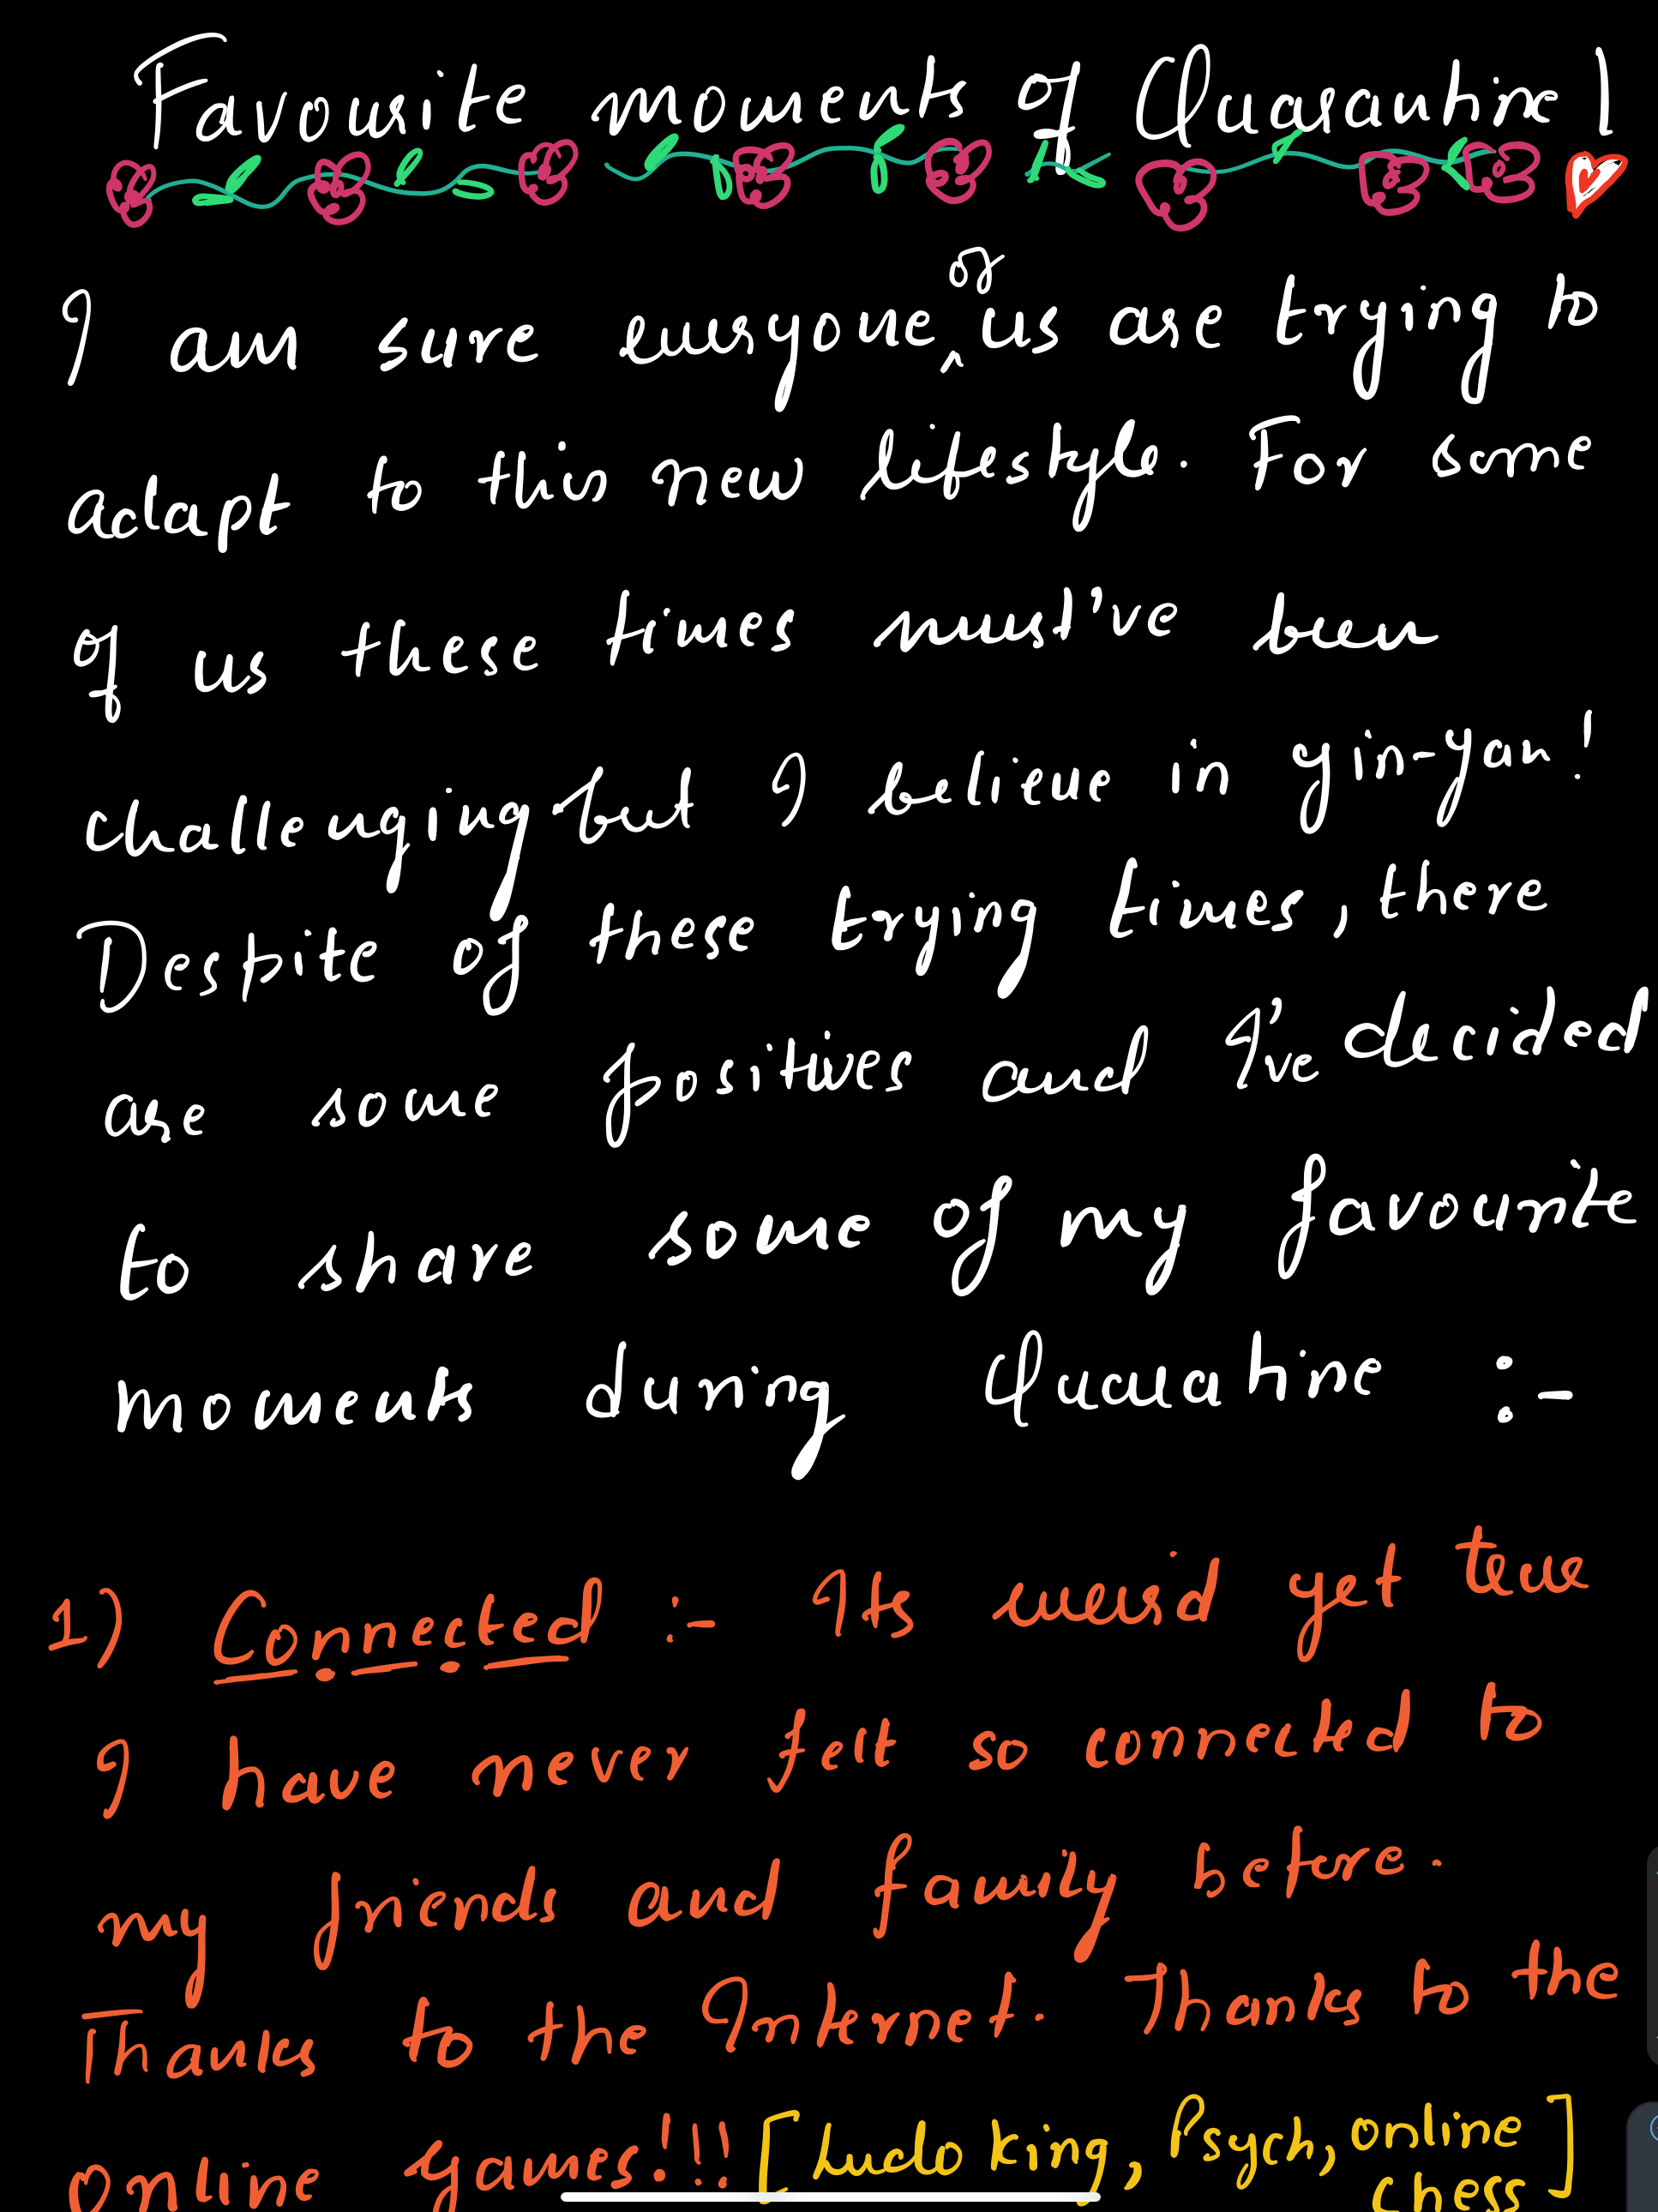 Favourite moments of Quarantine!
I am sure everyone of us are trying to
adapt to this new lifestyle. For some
of us these times must've been
challenging but I believe in yin-yan!
Despite of these trying times, there
are some positives and I've decided
to share some of my favourite
moments during Quaratine :-
1) Connected :- Its weird yet true
I have never felt so connected to
my friends and family before.
Thanks to the Internet. Thanks to the
online games!!! [Ludo king, Psych, online
chess]